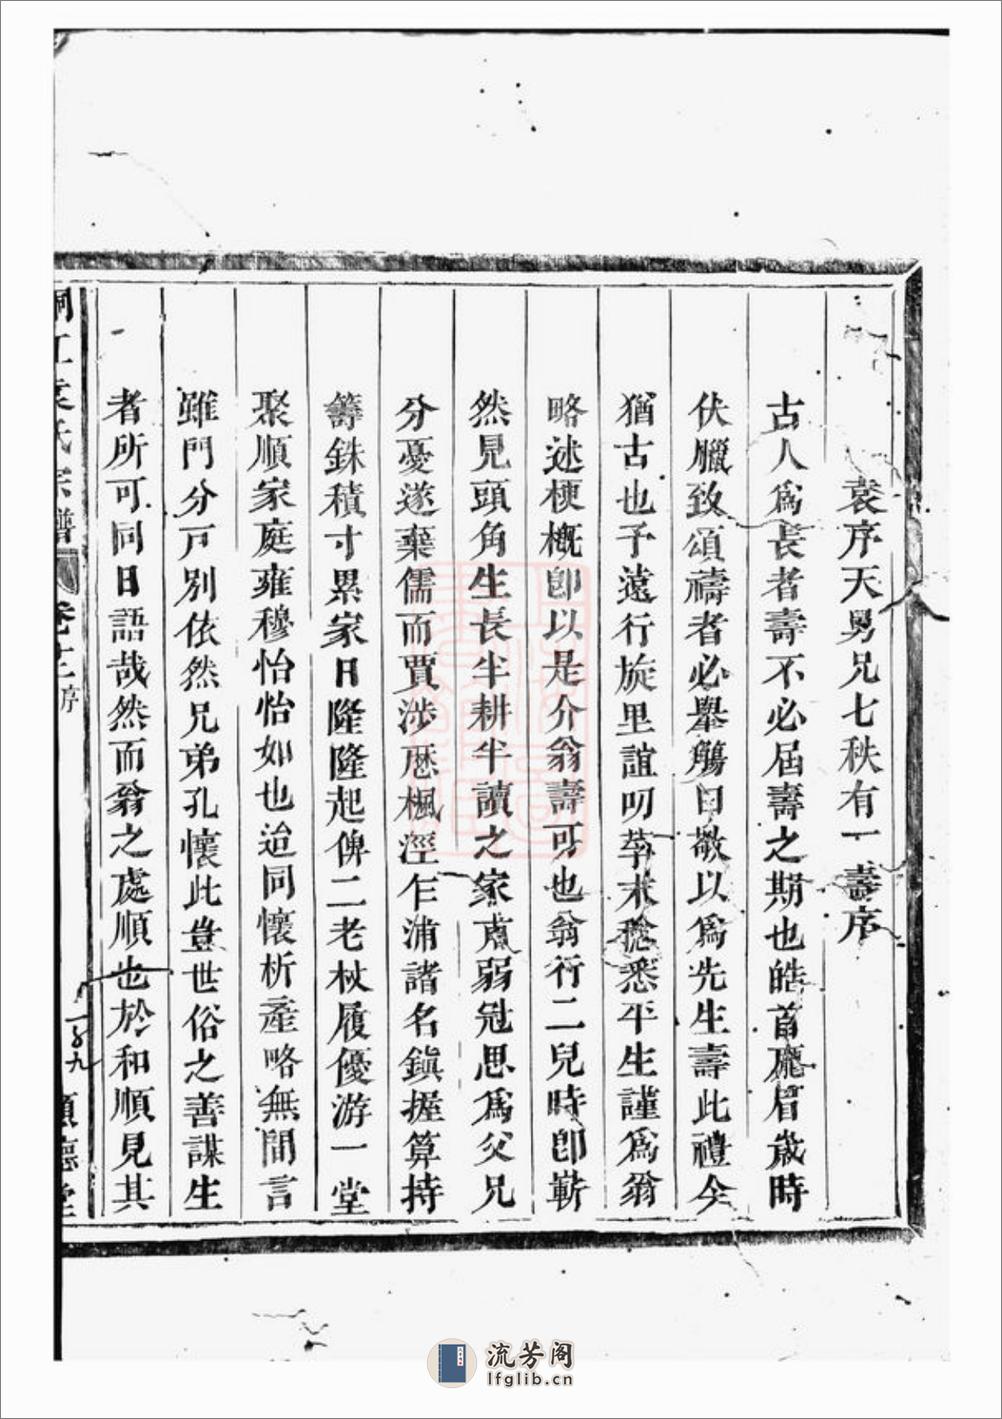 袁序天舅兄七秩有一壽序
古人爲長者壽不必屆壽之期也皓首龐眉歲時
伏臘致頌禱者必舉觴曰敬以爲先生壽此禮今
猶古也予遠行旋里誼叨莩末稔悉平生謹爲翁
略述梗槪卽以是介翁壽可也翁行二兒時卽嶄
然見頭角生長半耕半讀之家甫弱冠思爲父兄
分憂遂棄儒而賈涉厯楓涇乍浦諸名鎭握算持
籌銖積寸累家日隆隆起俾二老杖履優游一堂
聚順家庭雍穆怡怡如也迨同懷析產略無間言
雖門分戸別依然兄弟孔懷此豈世俗之善謀生
者所可同日語哉然而翁之處順也於和順見其
桐江袁氏宗譜 卷 序 九 順德堂
流芳阁
lfglib.cn